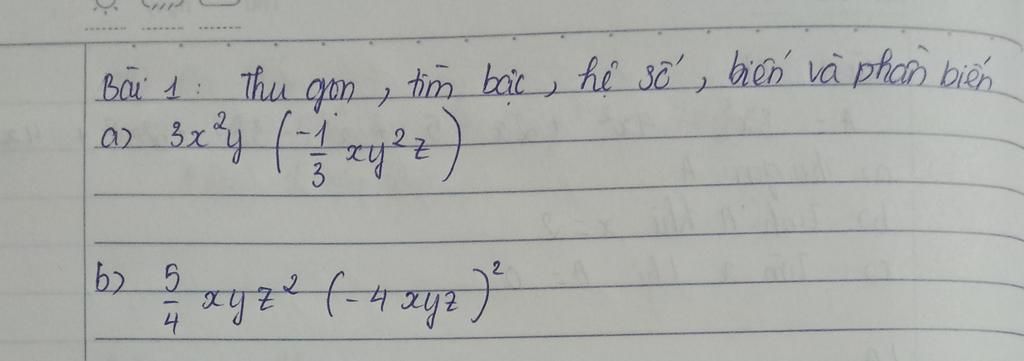 Bài 1: Thu gọn, tìm bậc, hệ số, biến và phần biến
a) 3x²y (-1/3 xy²z)
b) 5/4 xyz² (-4xyz)²